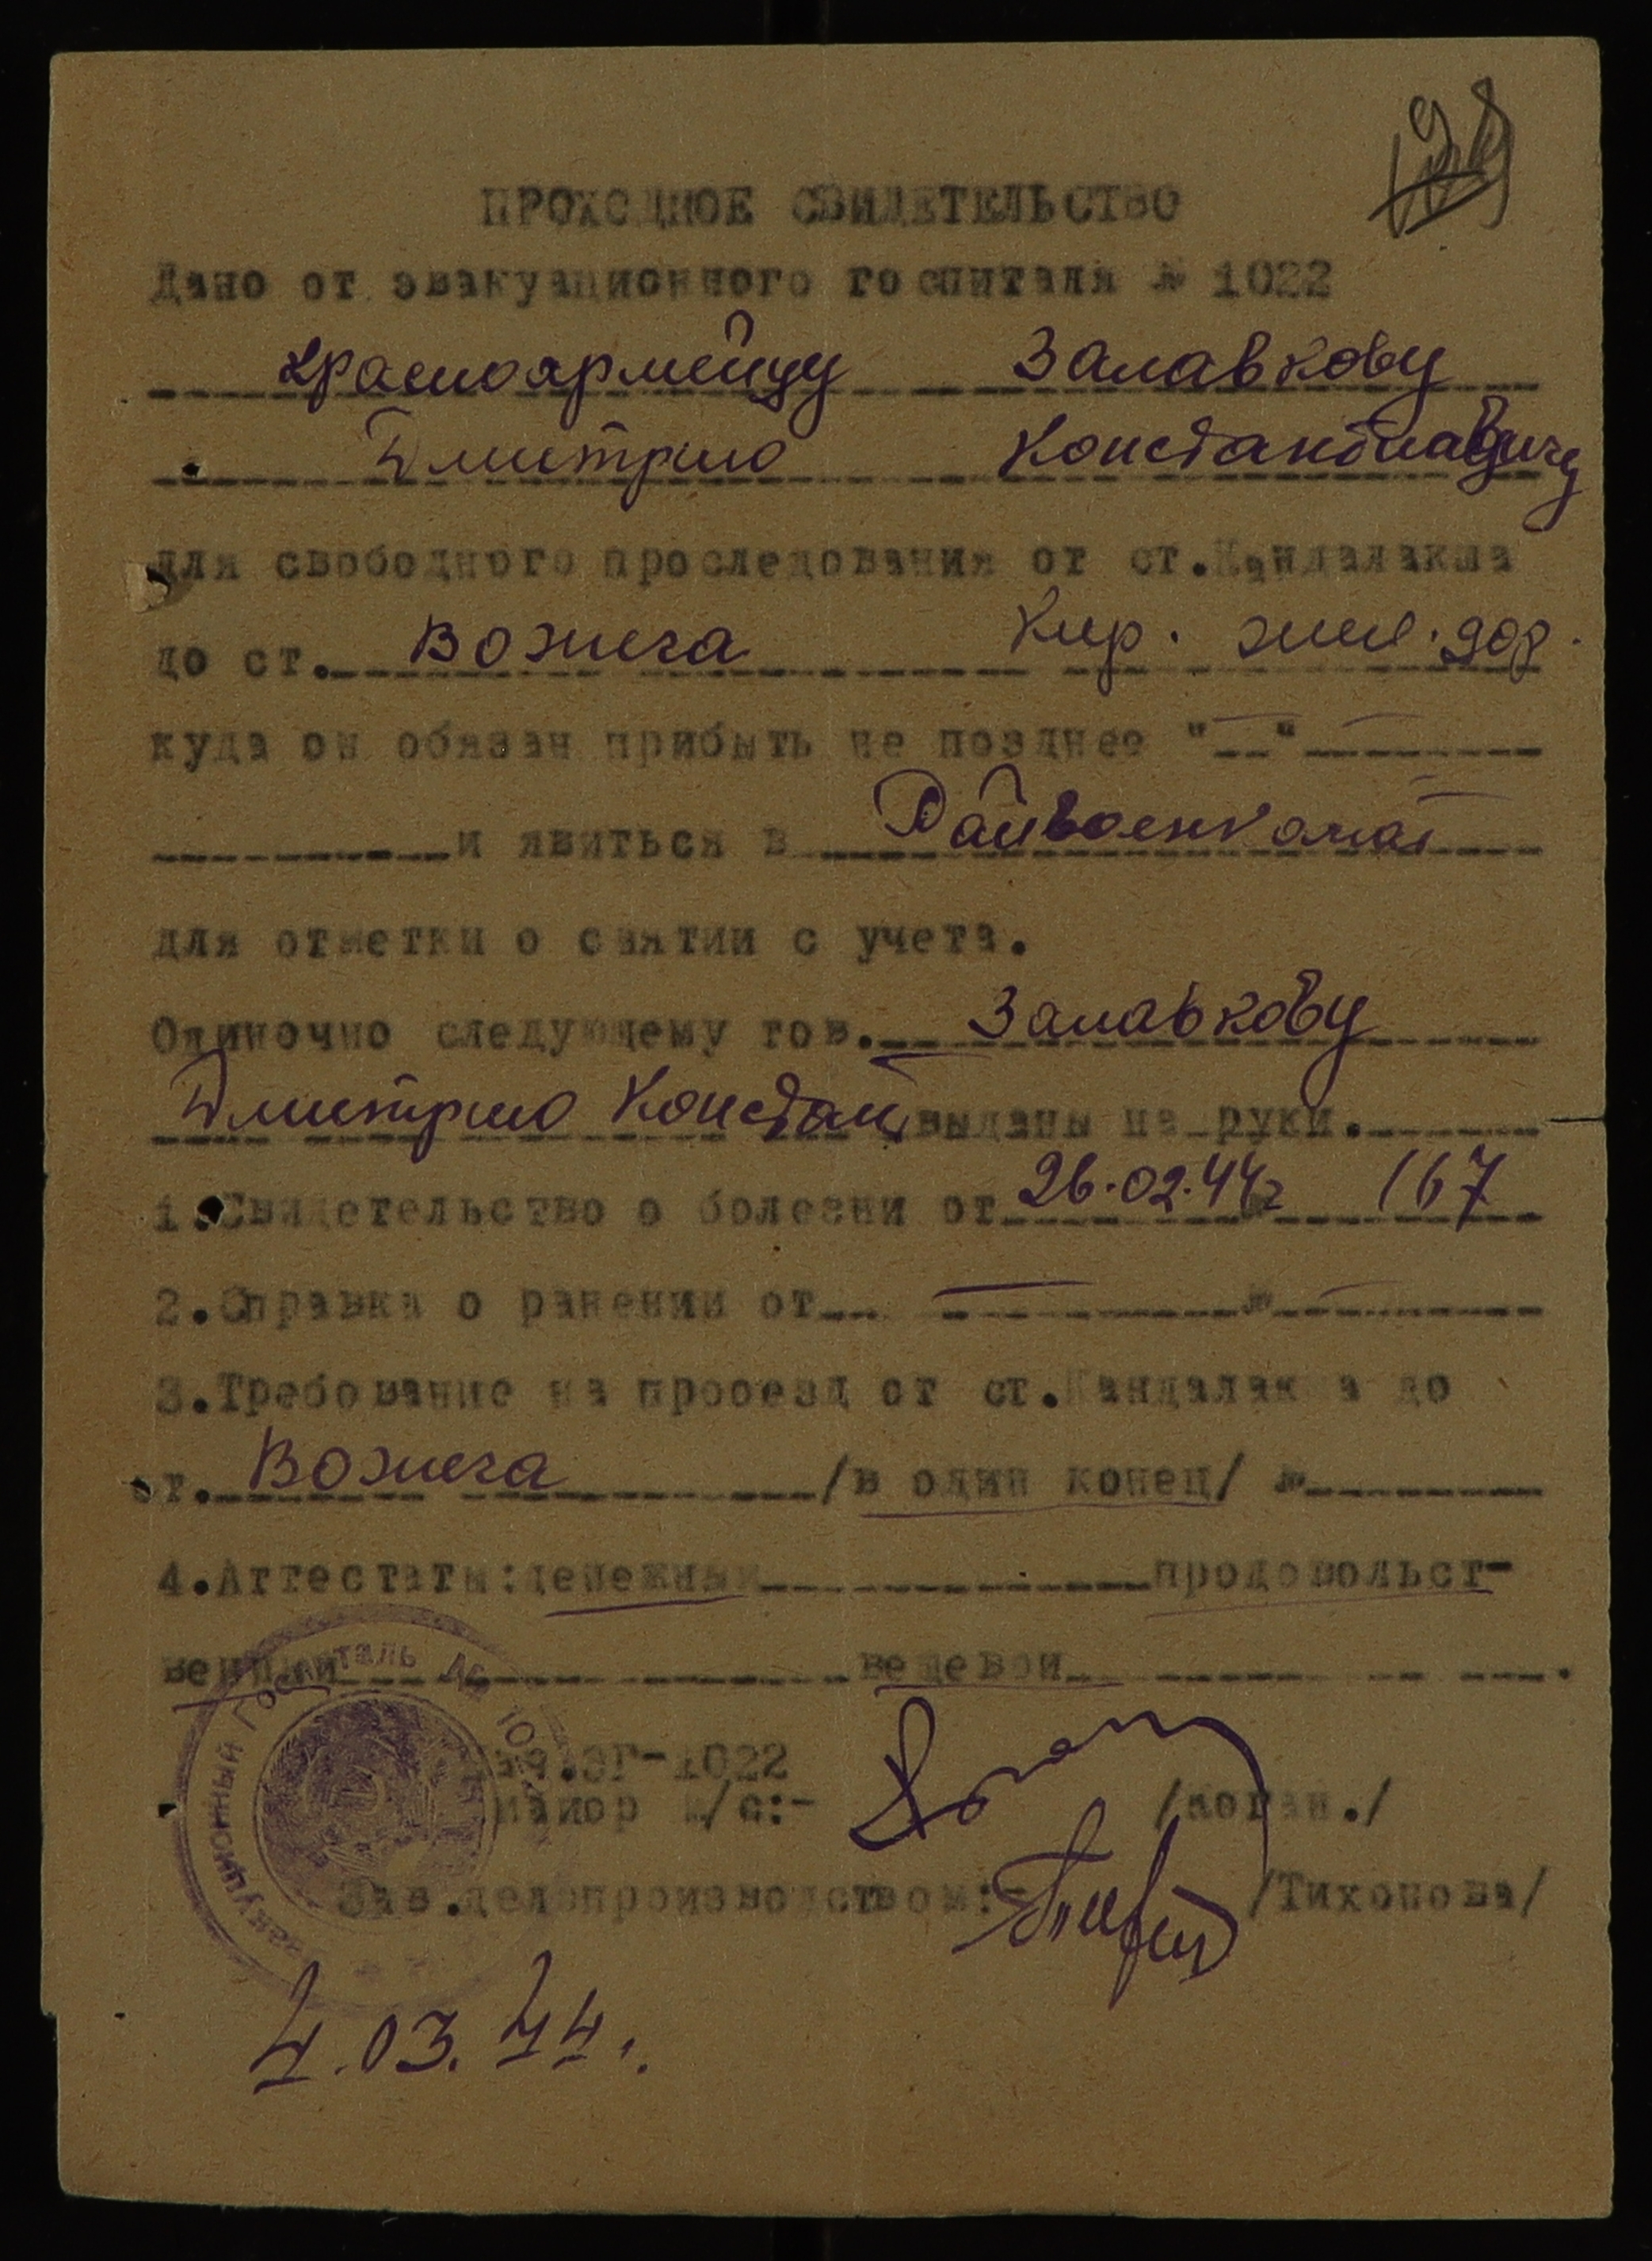 ПРОХОДНОЕ СВИДЕТЕЛЬСТВО
Дано от эвакуационного госпиталя № 1022
Красноармейцу Залавкову
Дмитрию Константиновичу
для свободного проследования от ст.Кандалакша
до ст. Вожега Кир. жел. дор.
куда он обязан прибыть не позднее "__"
и явиться в Райвоенкомат
для отметки о снятии с учета.
Одиночно следующему тов. Залавкову
Дмитрию Констан выданы на руки.
1.Свидетельство о болезни от 26.02.44г № 167
2.Справка о ранении от — № —
3.Требование на прооезд от ст.Кандалакша до
ст. Вожега /в один конец/ №
4.Аттестаты:денежный продовольст-
венный вещевой .
Нач.ЭГ-1022
майор м/с:- /Коган./
Зав.делопроизводством:- /Тихонова/
Эвакуационный Госпиталь № 1022
4.03.44.